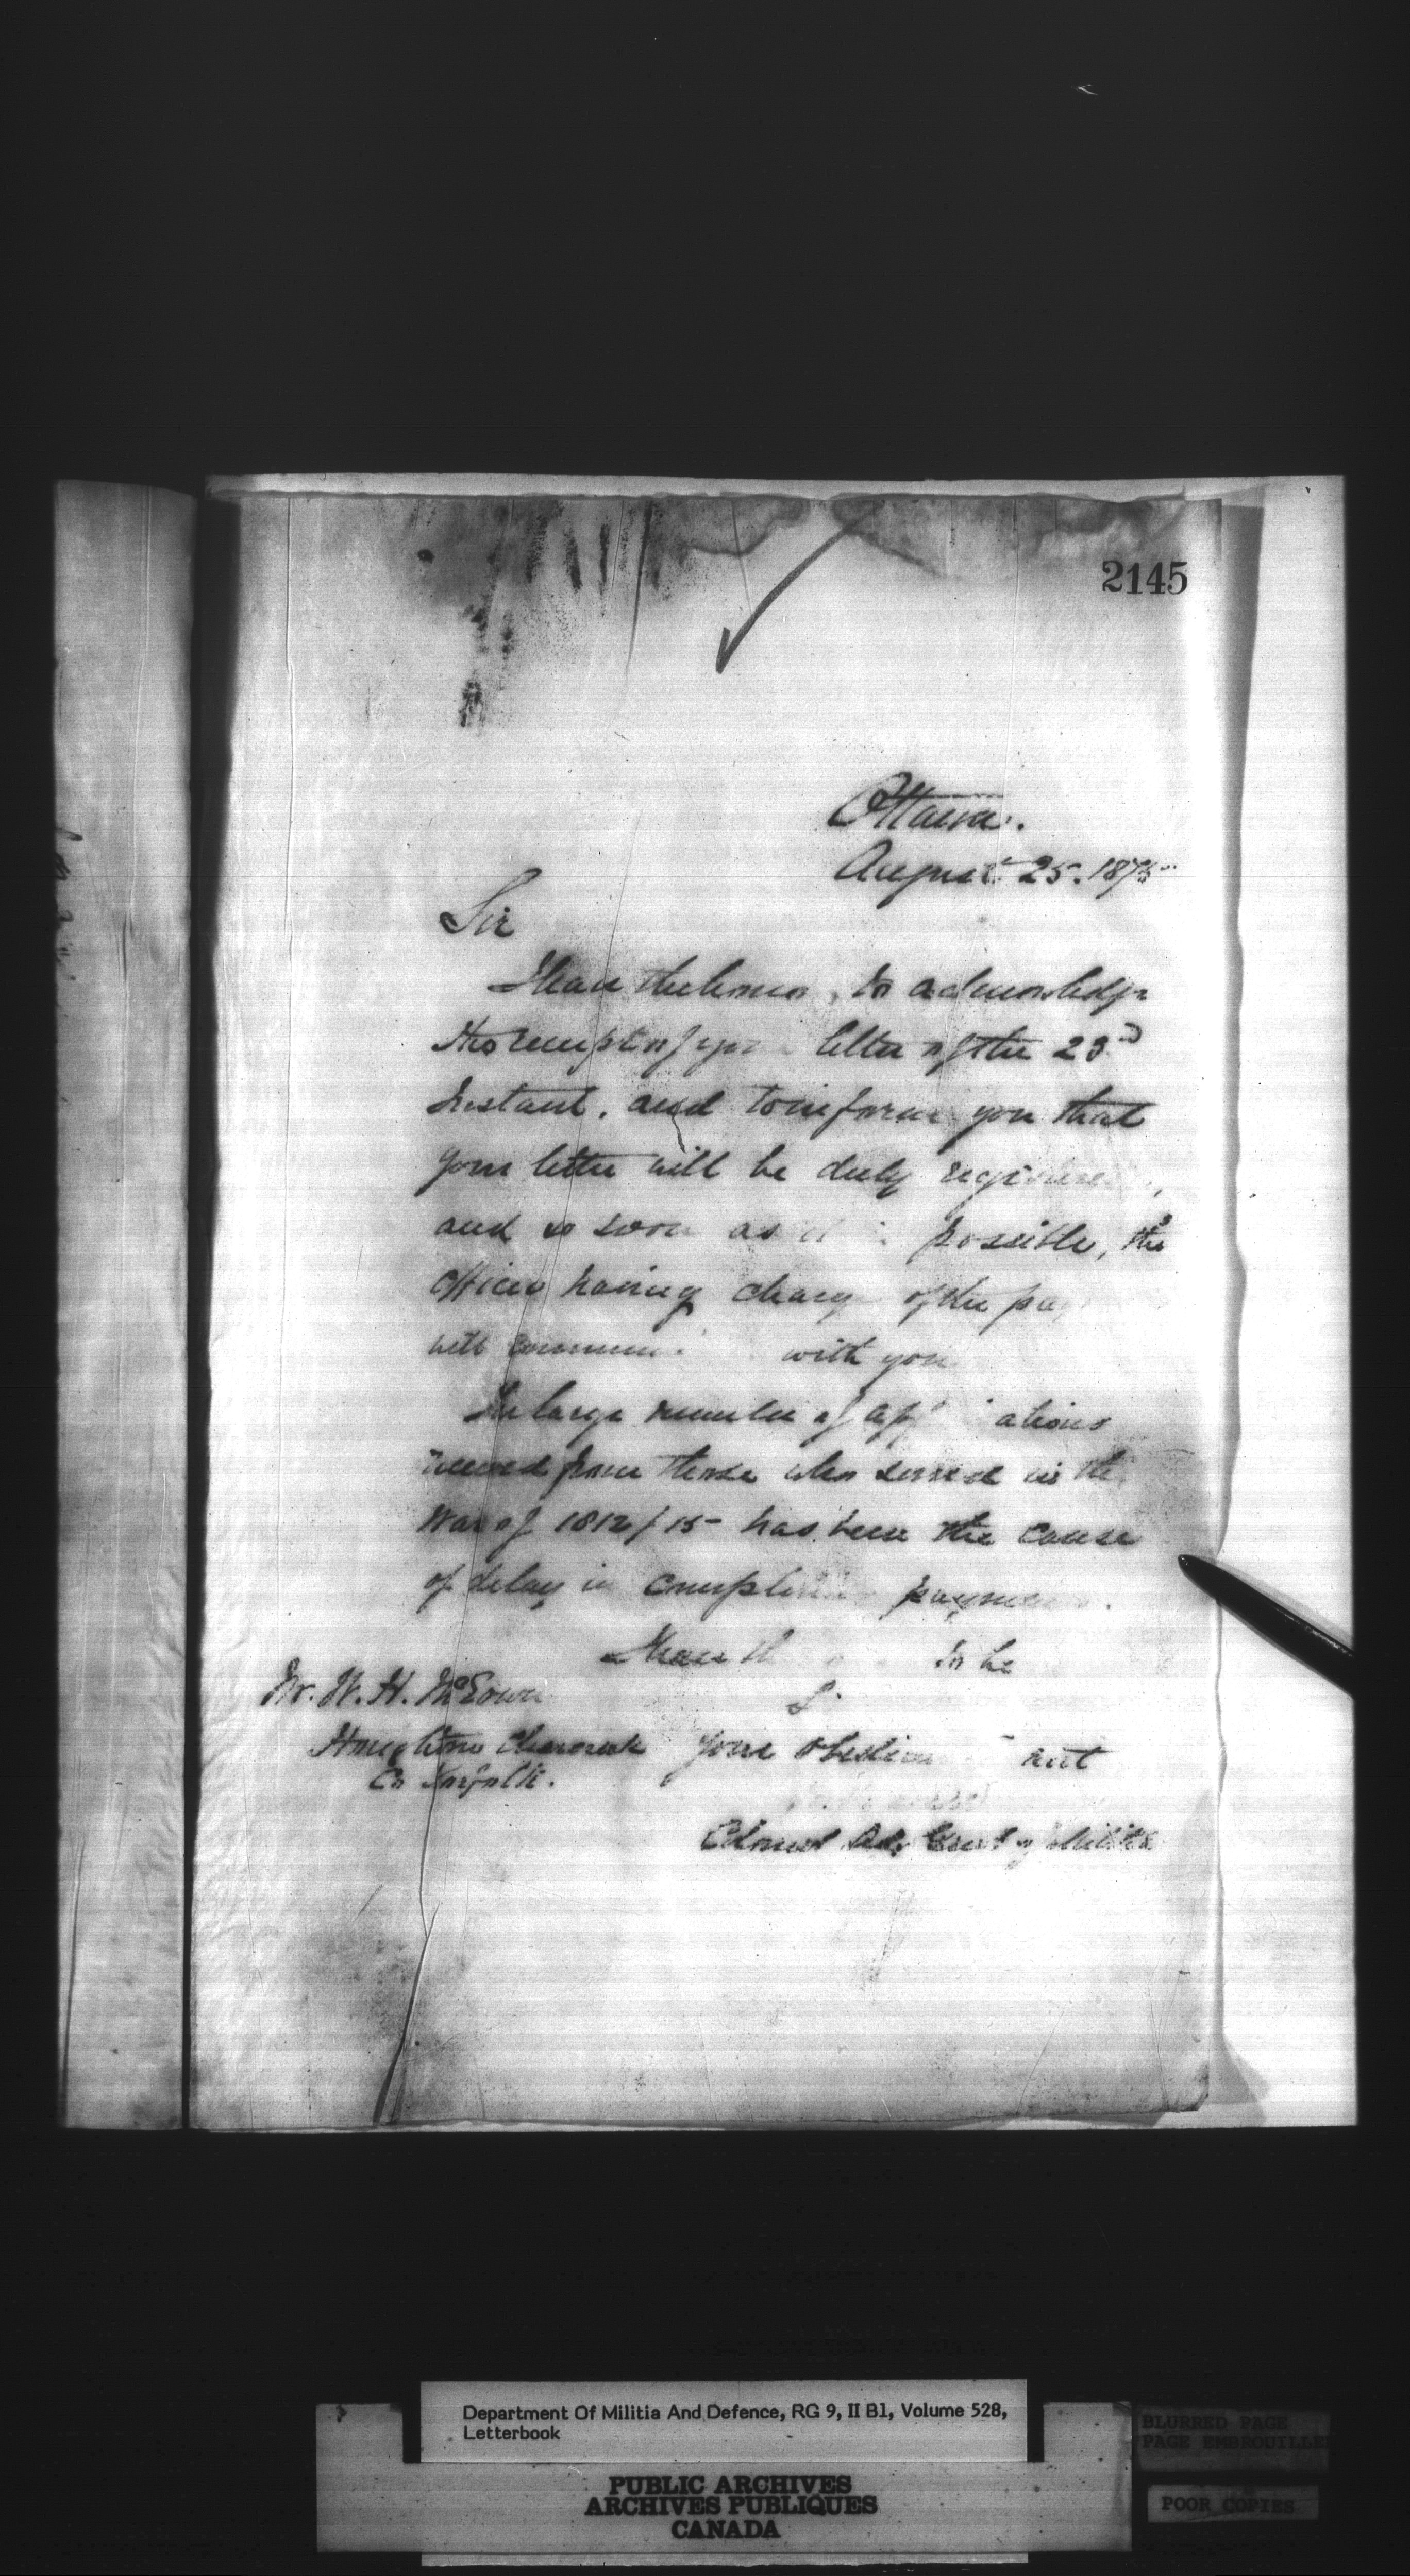 2145
Ottawa.
August 25. 1875
Sir
I have the honor, to acknowledge
the receipt of your letter of the 23rd
Instant. and to inform you that
your letter will be duly registered,
and so soon as it possible, the
officer having charge of the
will with you
The large number of applications
received from those who served in the
War of 1812/15 has been the cause
of delay in
I have to be
Mr. W. H. McEown
S
Houghton
your obedient
Co Norfolk.
Colonel Adj Genl of Militia
Department Of Militia And Defence, RG 9, II B1, Volume 528,
Letterbook
BLURRED PAGE
PAGE EMBROUILLE
PUBLIC ARCHIVES
ARCHIVES PUBLIQUES
CANADA
POOR COPIES